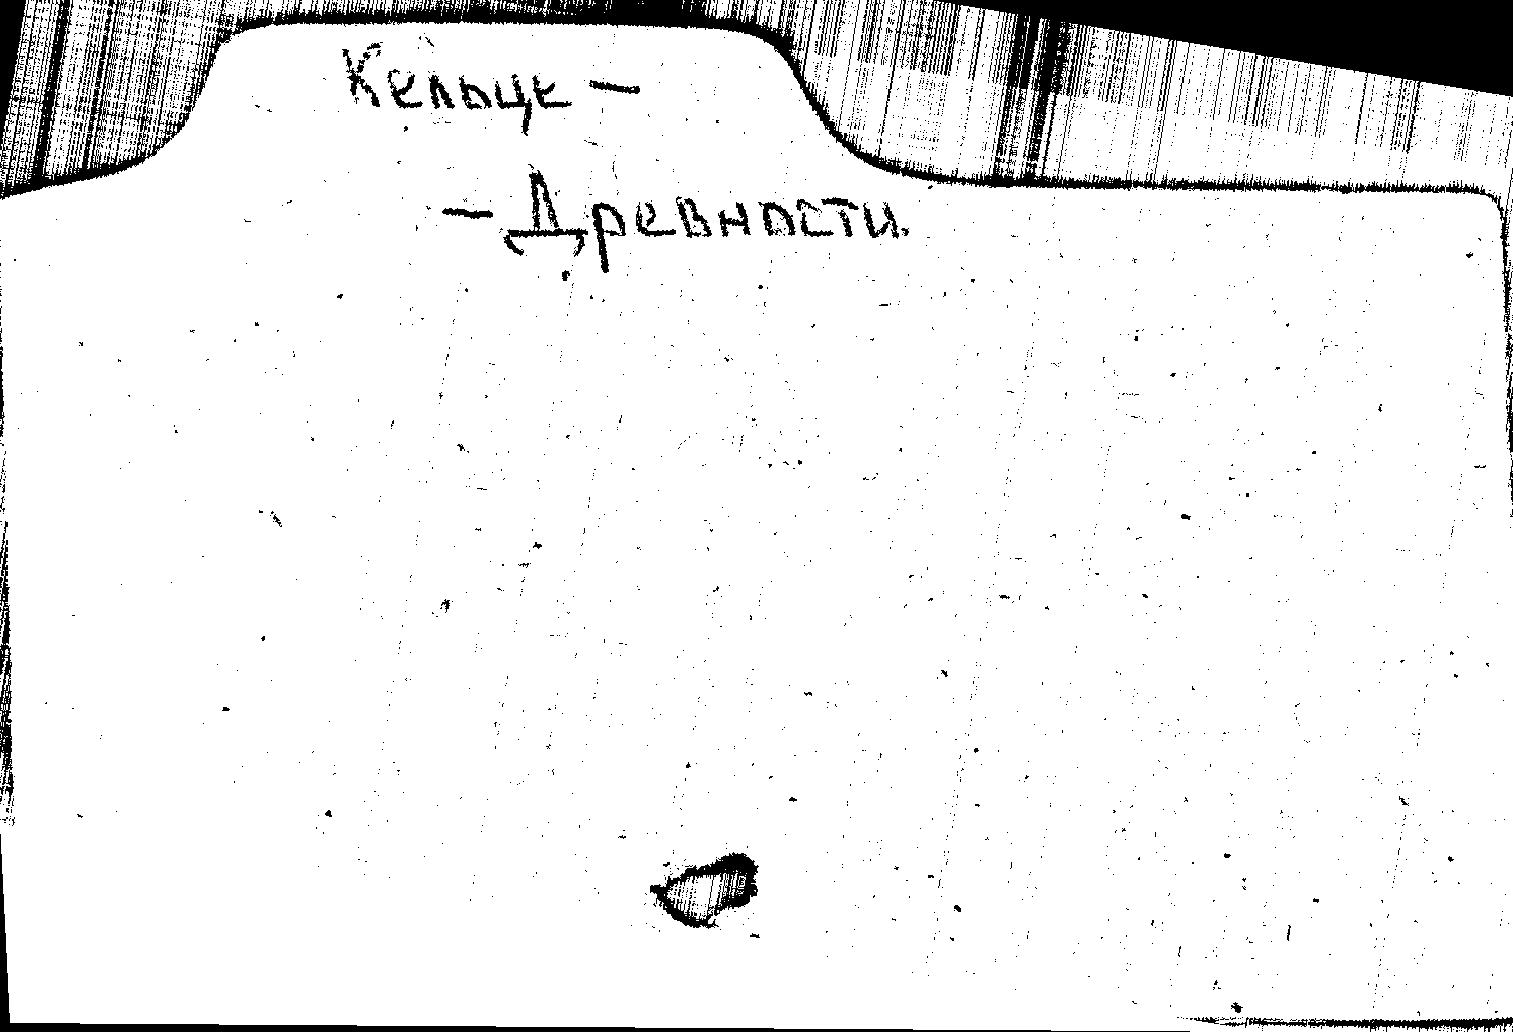 Кельце —
— Древности.